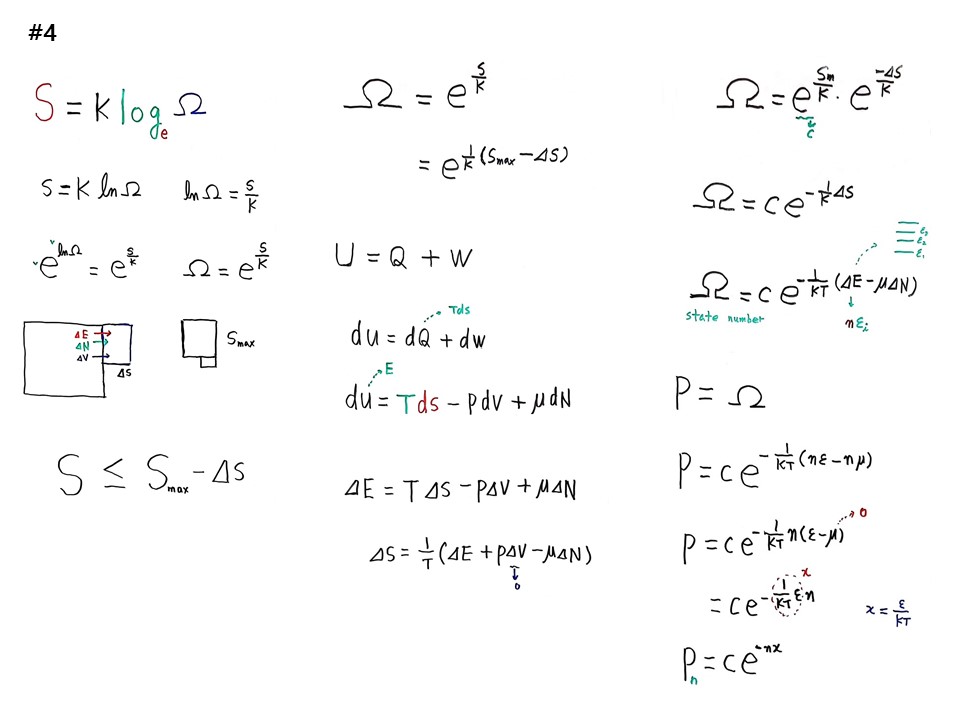 #4
S = K logₑ Ω
S = K ln Ω    ln Ω = S/K
e^(ln Ω) = e^(S/K)    Ω = e^(S/K)
ΔE
ΔN
ΔV
ΔS
Smax
S ≤ Smax - ΔS
Ω = e^(S/K)
= e^(1/K (Smax - ΔS))
U = Q + W
Tds
du = dQ + dw
E
du = Tds - pdv + μdN
ΔE = TΔS - pΔV + μΔN
ΔS = 1/T (ΔE + pΔV - μΔN)
0
Ω = e^(Sm/K) · e^(-ΔS/K)
c
Ω = c e^(-1/K ΔS)
ε₃
ε₂
ε₁
Ω = c e^(-1/KT (ΔE - μΔN))
state number
nεᵢ
P = Ω
P = c e^(-1/KT (nε - nμ))
0
P = c e^(-1/KT n(ε - μ))
x
= c e^(-1/KT ε n)    x = ε/KT
Pₙ = c e^(-nx)